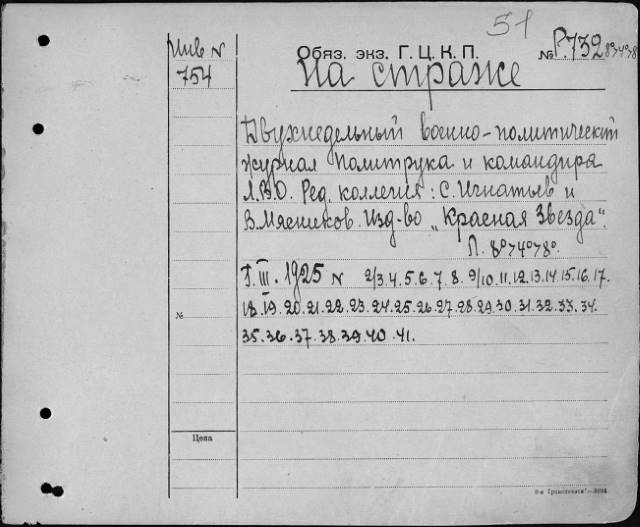 51
Инв N
754
Обяз. экз. Г. Ц. К. П.
№ Р.732 8°74°78
На страже
Двухнедельный военно-политический
журнал Политрука и командира
Л.В.О. Ред. коллегия: С. Игнатьев и
В. Мясников. Изд-во „Красная Звезда".
Л. 8°74°78°.
Г. III. 1925 N 2/3.4.5.6.7.8. 9/10.11.12.13.14.15.16.17.
18.19.20.21.22.23.24.25.26.27.28.29.30.31.32.33.34.
№
35.36.37.38.39.40.41.
Цена